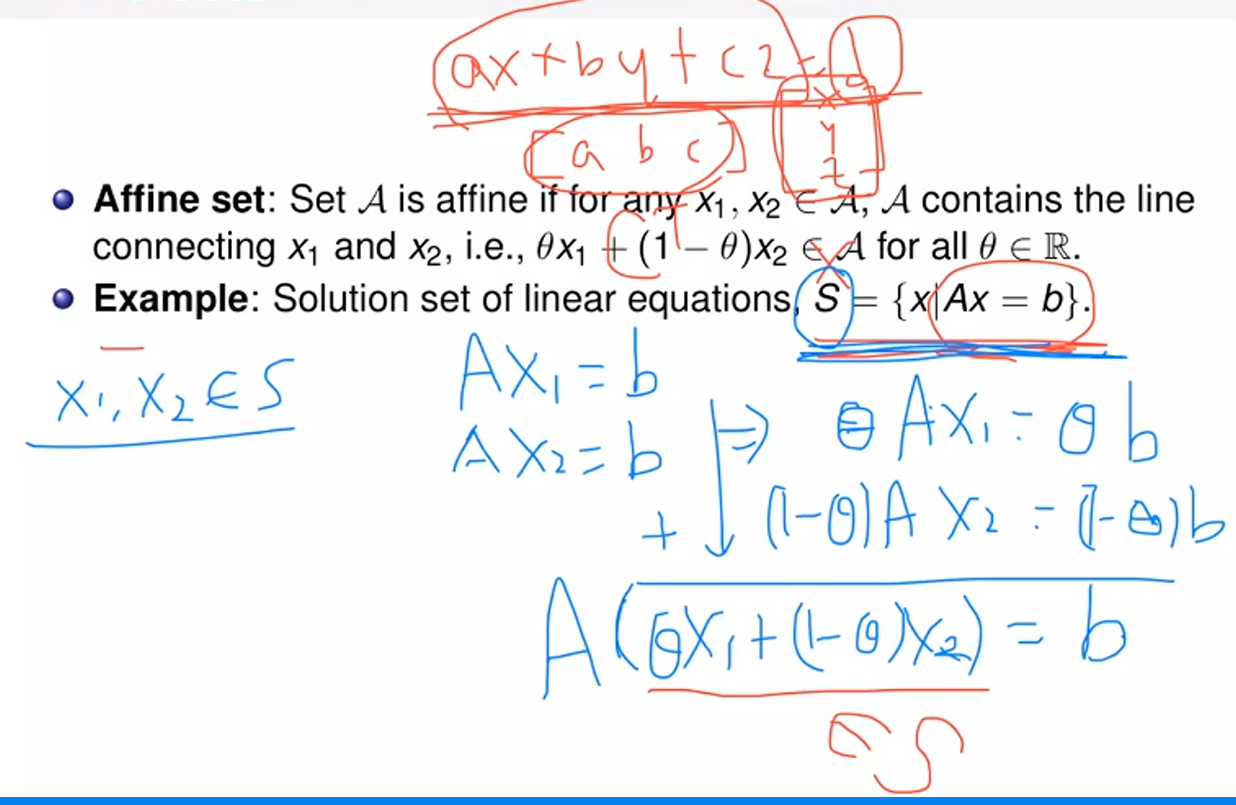 ax + by + cz = d
[a b c] [x y z]
Affine set: Set 𝒜 is affine if for any x₁, x₂ ∈ 𝒜, 𝒜 contains the line
connecting x₁ and x₂, i.e., θx₁ + (1 − θ)x₂ ∈ 𝒜 for all θ ∈ ℝ.
Example: Solution set of linear equations, S = {x|Ax = b}.
x₁, x₂ ∈ S
Ax₁ = b
Ax₂ = b
⇒ θAx₁ = θb
+ ↓ (1-θ)Ax₂ = (1-θ)b
A(θx₁ + (1-θ)x₂) = b
∈ S